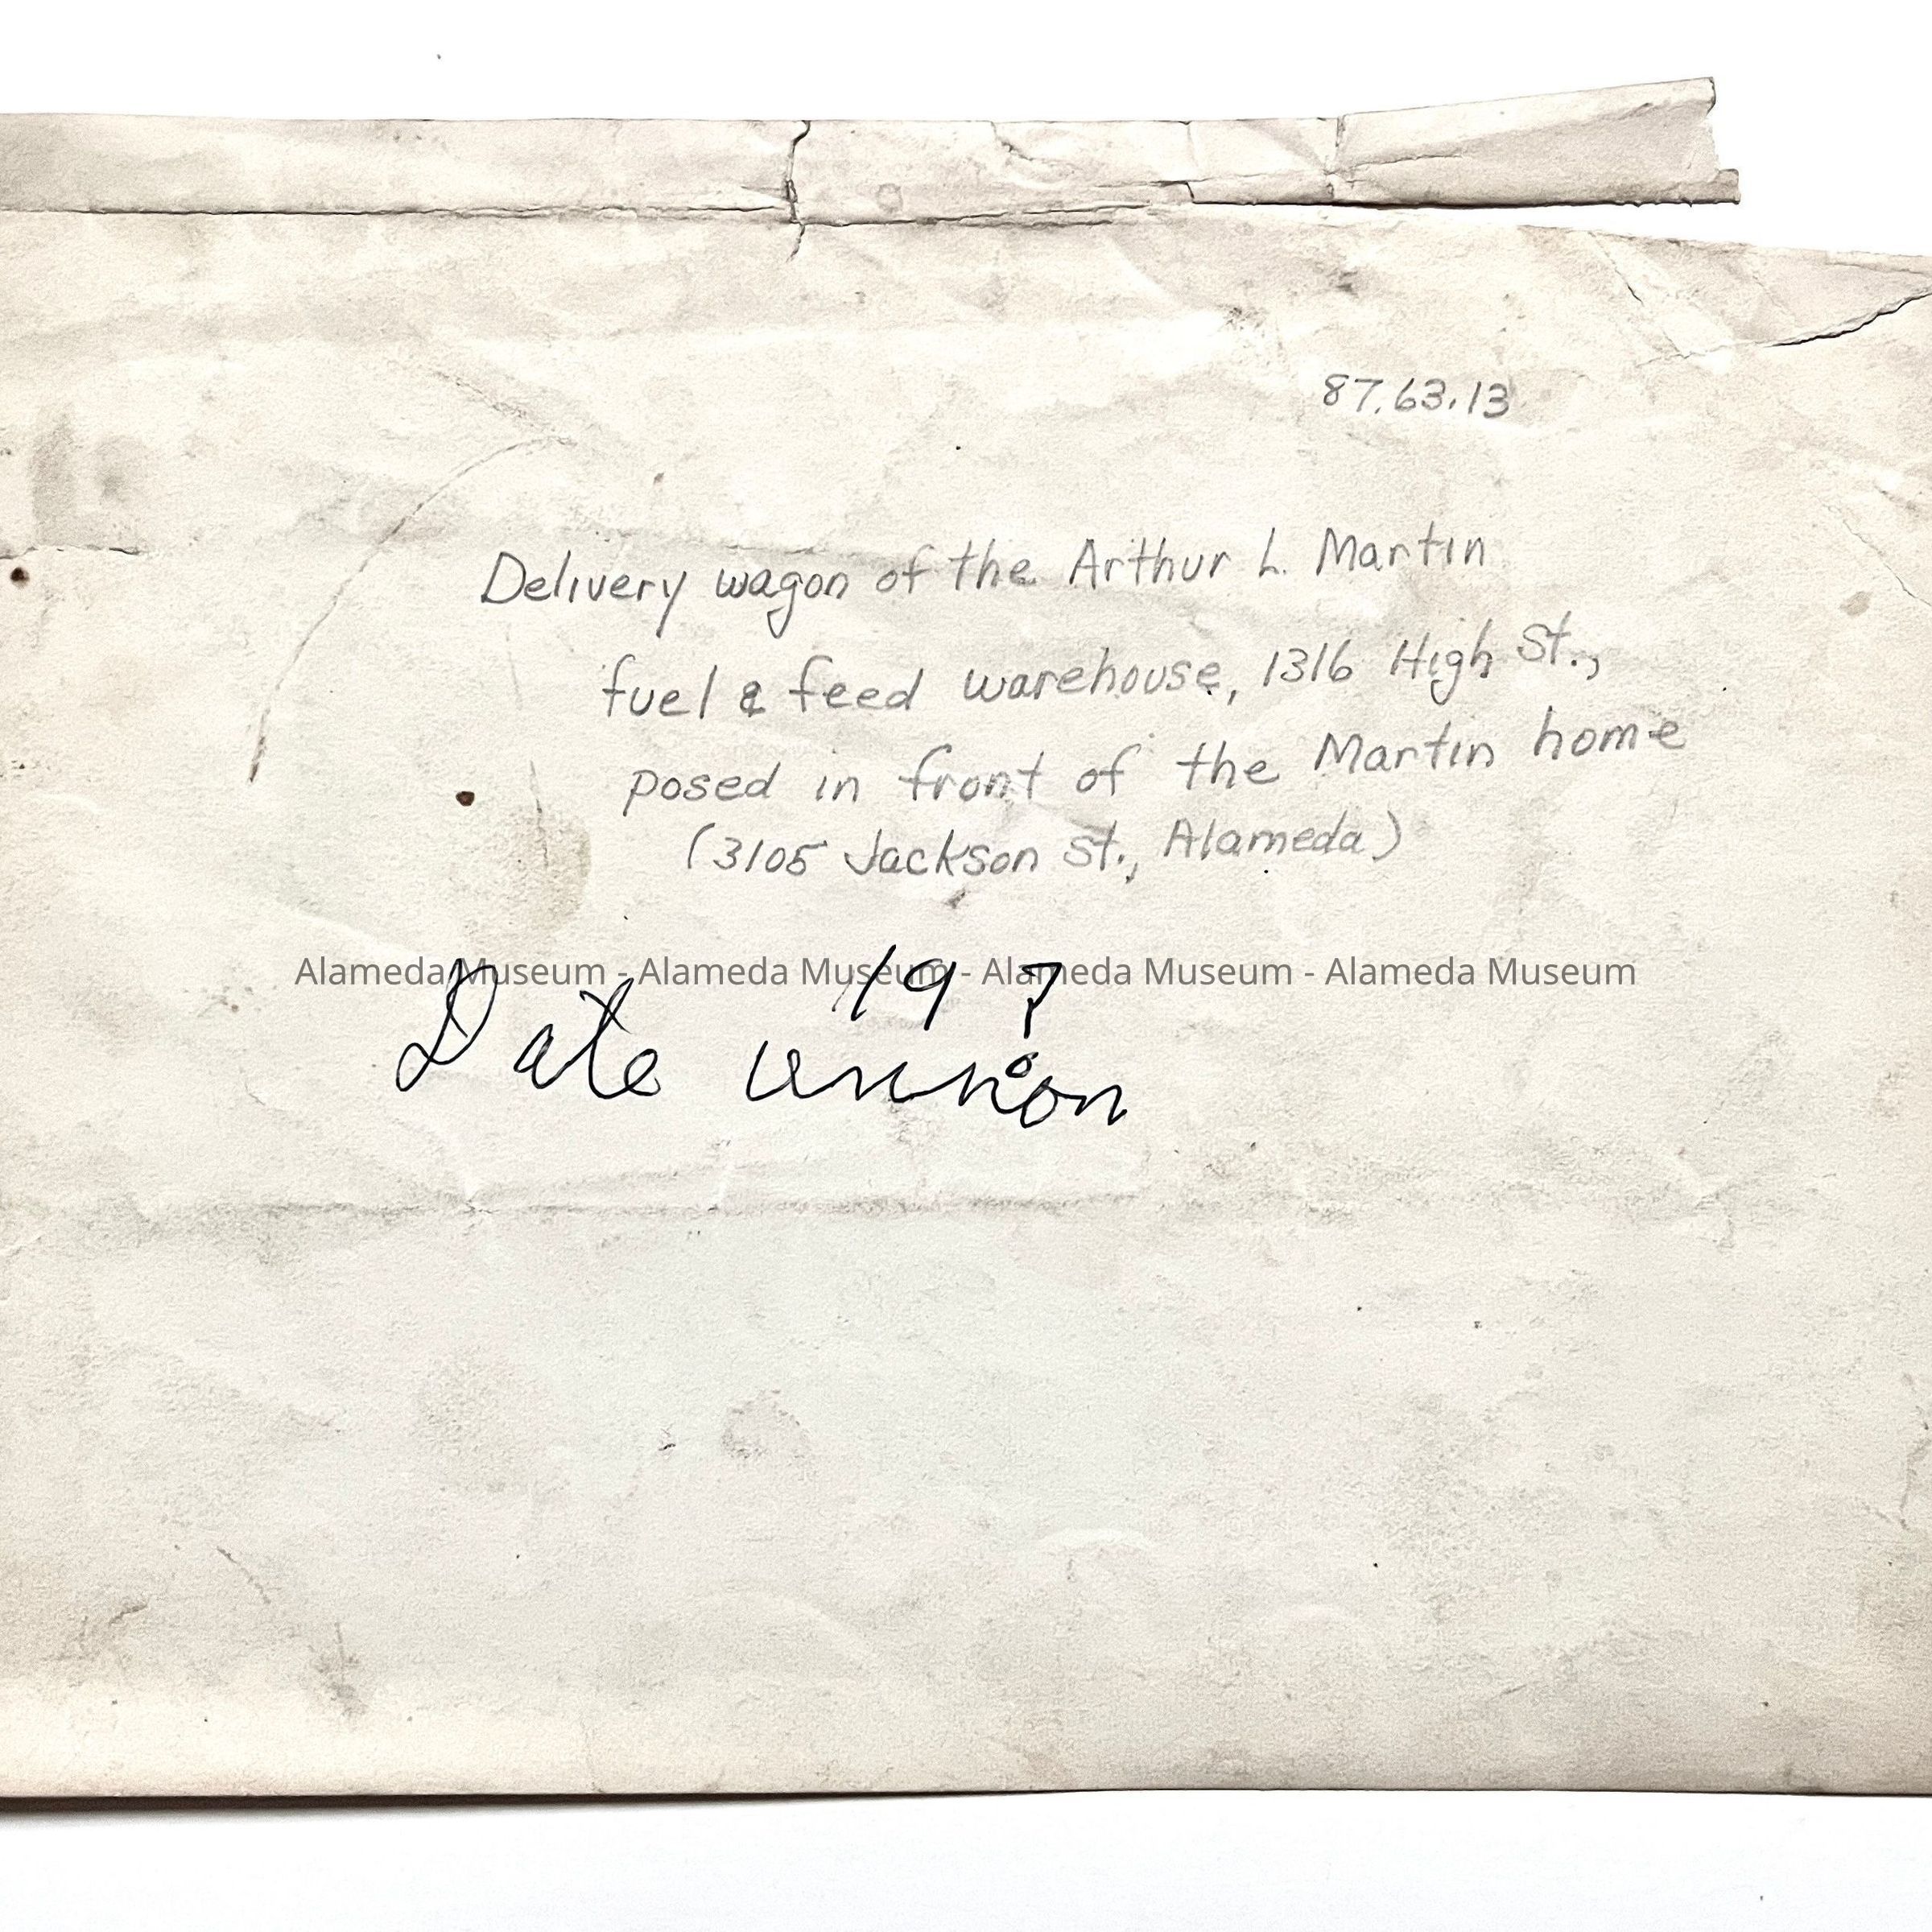 87.63.13
Delivery wagon of the Arthur L. Martin
fuel & feed warehouse, 1316 High St.,
posed in front of the Martin home
(3105 Jackson St., Alameda)
Alameda Museum - Alameda Museum - Alameda Museum - Alameda Museum
19 ?
Date